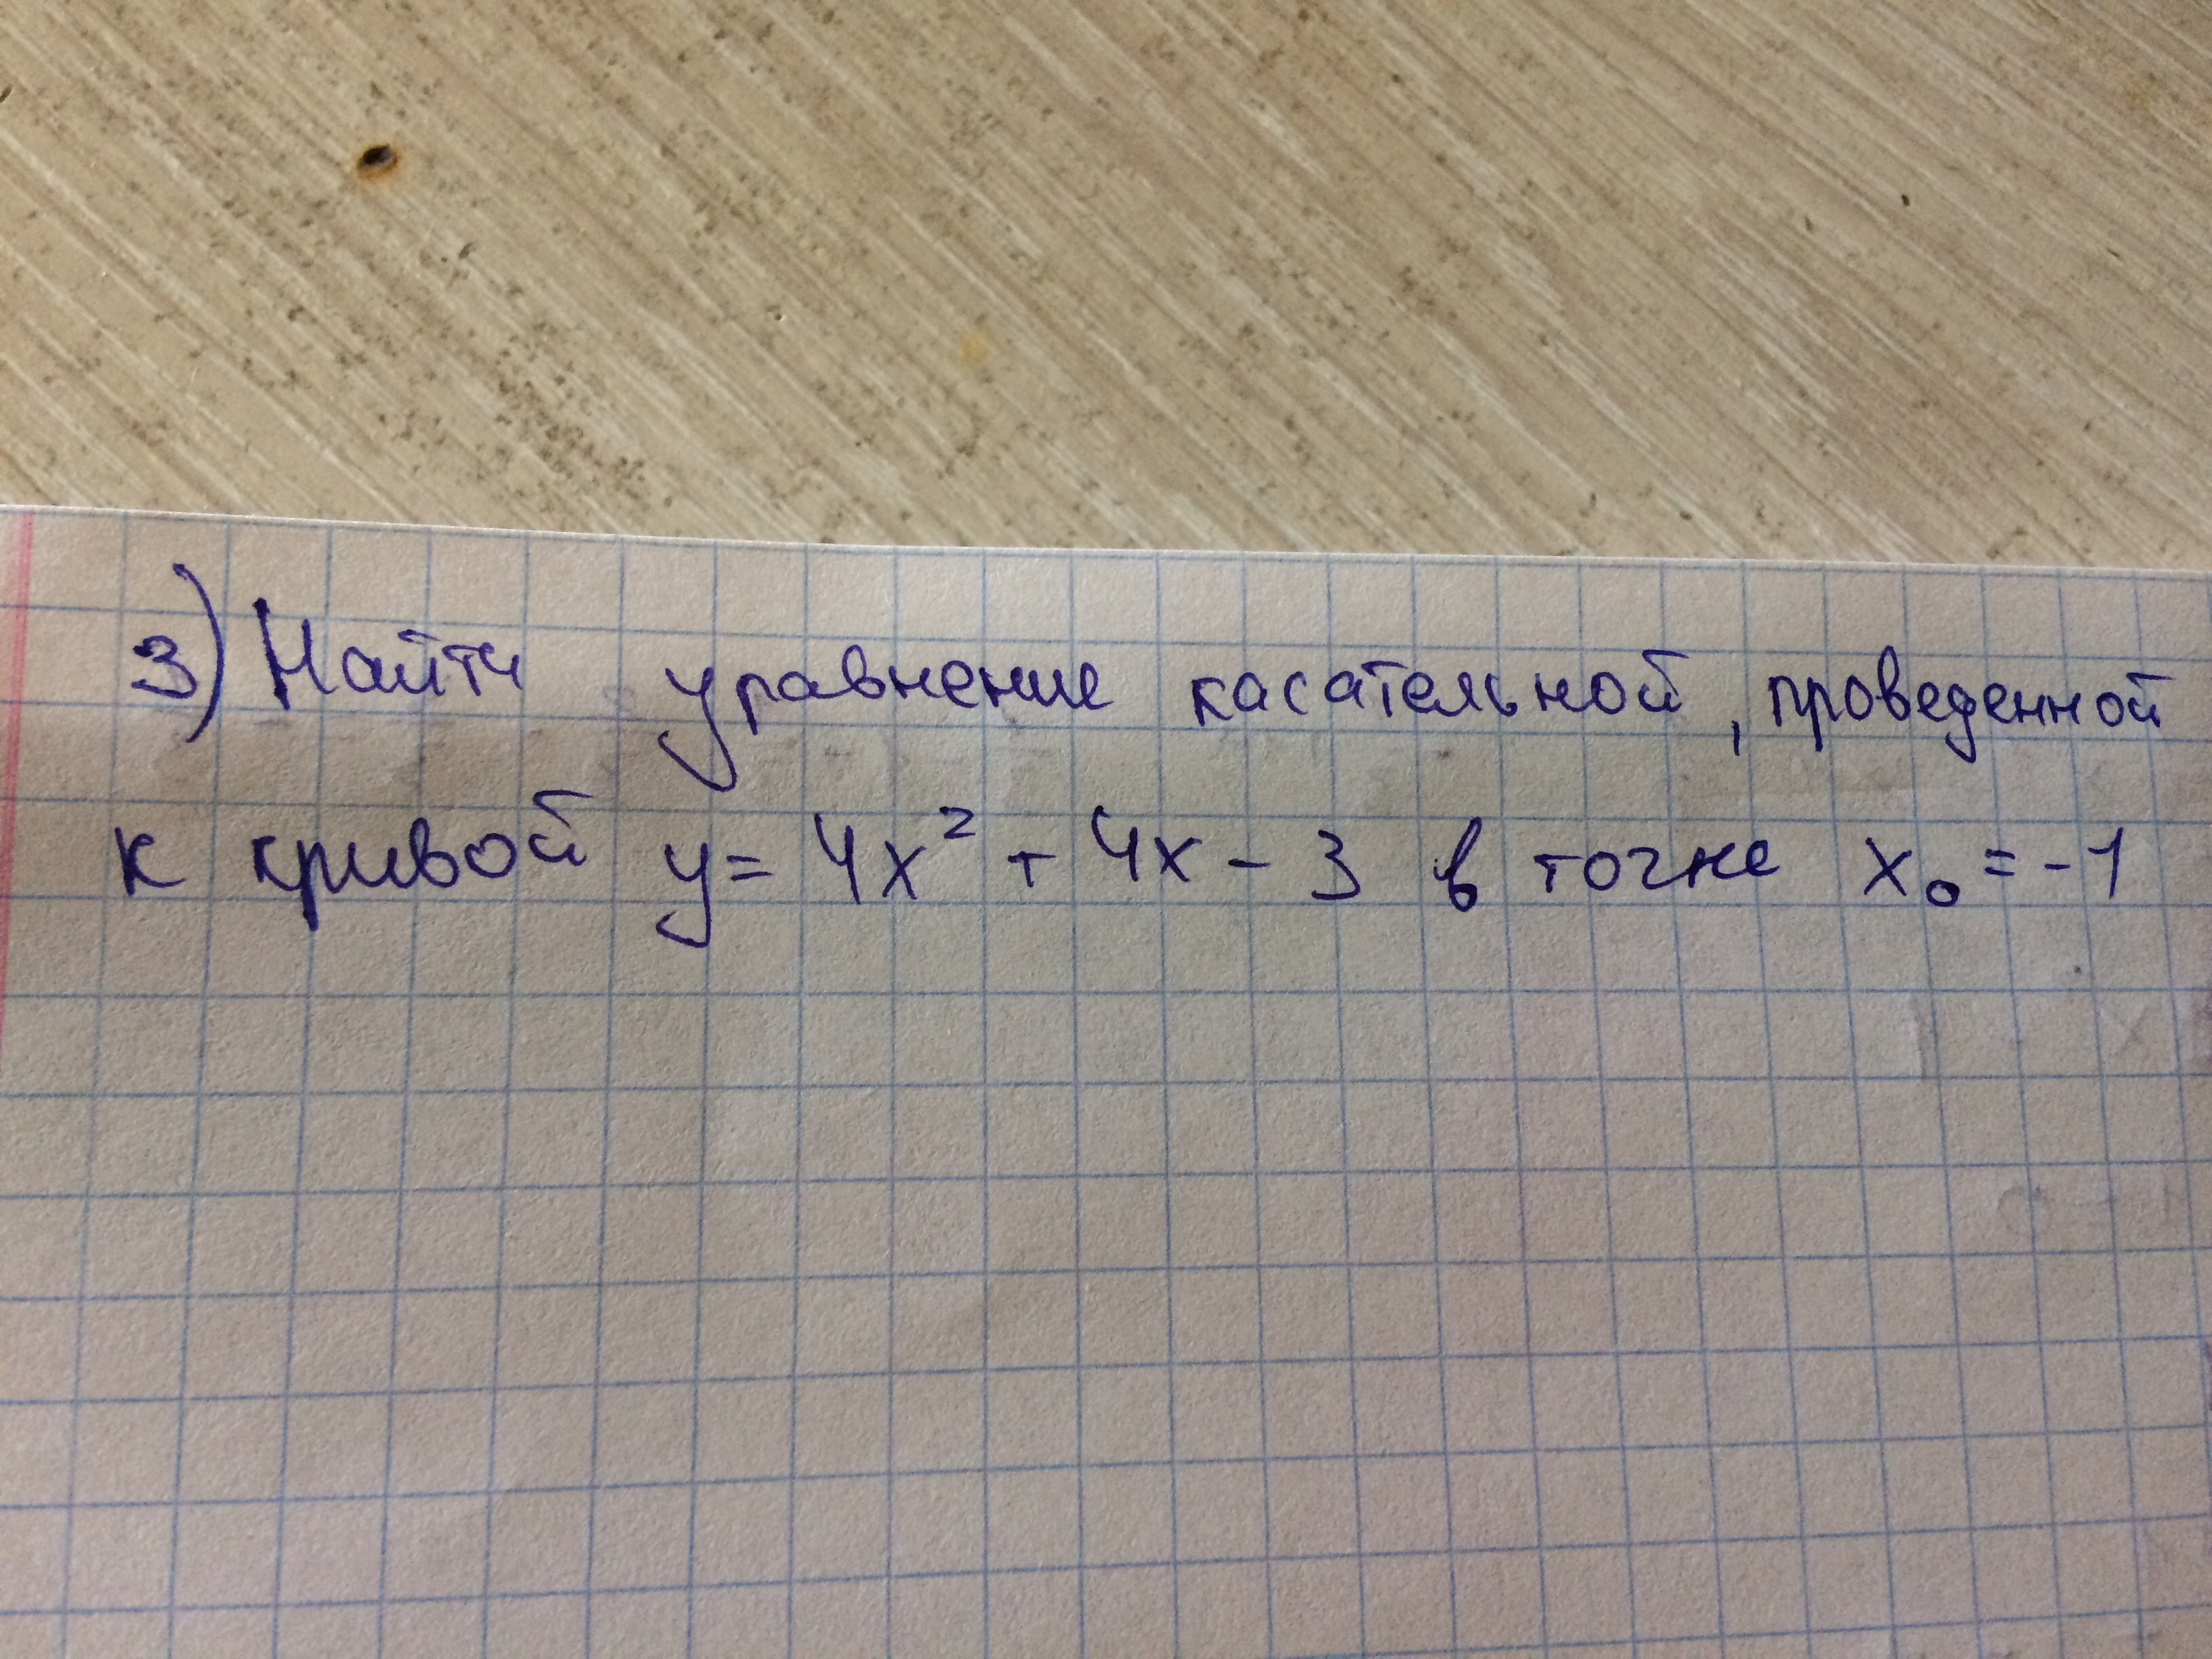 3) Найти уравнение касательной, проведенной
к кривой y = 4x² + 4x - 3 в точке x₀ = -1